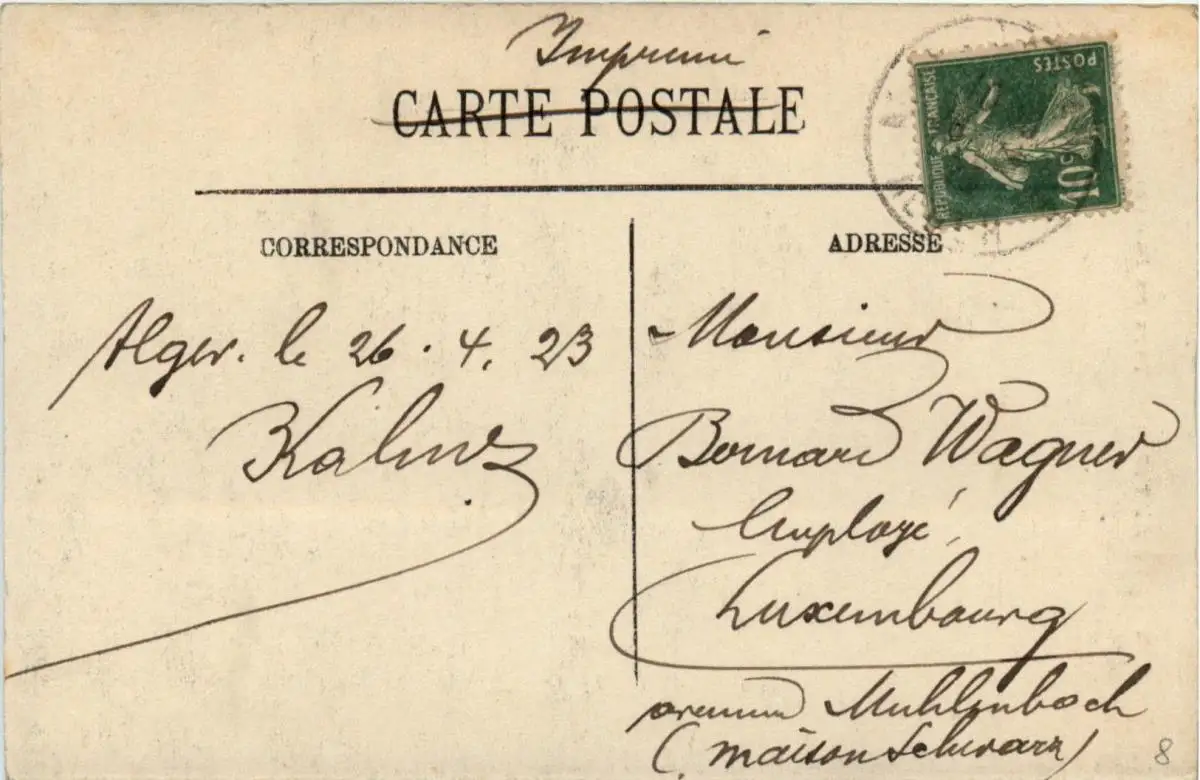 Imprimé
CARTE POSTALE
POSTES
REPUBLIQUE FRANÇAISE
10c
CORRESPONDANCE
ADRESSE
Alger. le 26.4.23
Monsieur
Bernard Wagner
Employé,
Luxembourg
avenue Muhlenbach
(maison Schwarz)
8